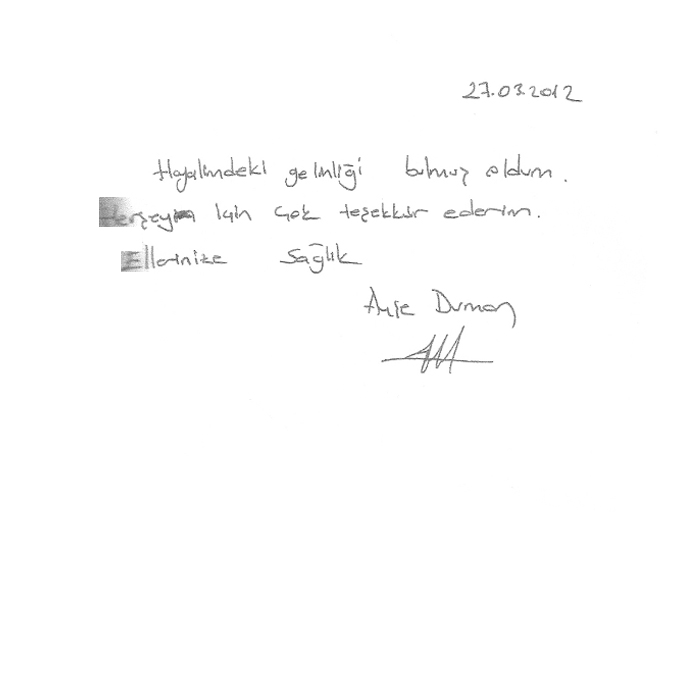 27.03.2012
Hayalimdeki gelinliği bulmuş oldum.
Herşey için çok teşekkür ederim.
Ellerinize sağlık
Ayşe Duman